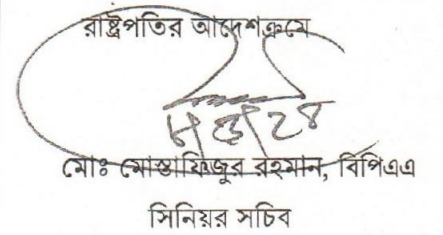 রাষ্ট্রপতির আদেশক্রমে
মোঃ মোস্তাফিজুর রহমান, বিপিএএ
সিনিয়র সচিব